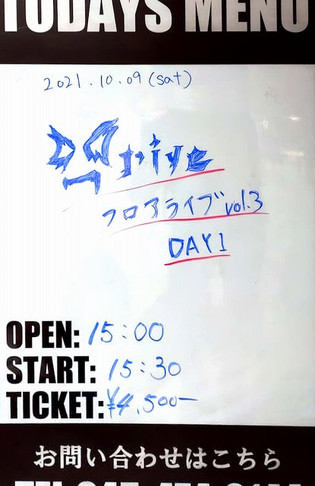 TODAYS MENU
2021.10.09 (sat)
フロアライブ vol.3
DAY1
OPEN: 15:00
START: 15:30
TICKET: ¥4,500-
お問い合わせはこちら